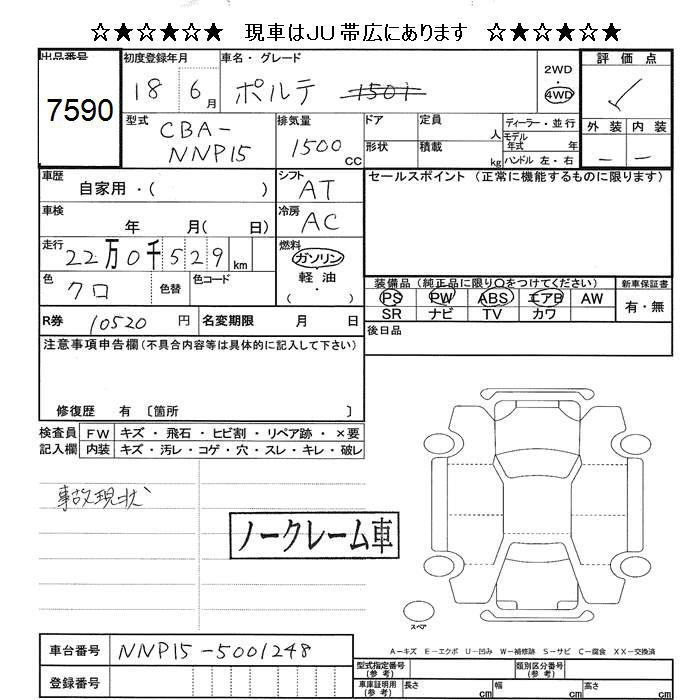 ☆★☆★☆★ 現車はJU帯広にあります ☆★☆★☆★
出品番号 7590
初度登録年月 18 6月
車名・グレード ポルテ 150i
2WD 4WD
評価点 ✓
外装 内装
— —
型式 CBA-NNP15
排気量 1500cc
ドア 形状
定員 人
積載 kg
ディーラー・並行
モデル年式 年
ハンドル 左・右
車歴 自家用・( )
シフト AT
セールスポイント (正常に機能するものに限ります)
車検 年 月( 日)
冷房 AC
走行 22万0千529km
燃料 ガソリン 軽油 ( ・ )
色 クロ 色替 色コード
装備品 (純正品に限り○をつけてください) 新車保証書
PS PW ABS エアB AW 有・無
SR ナビ TV カワ
R券 10520円 名変期限 月 日
後日品
注意事項申告欄(不具合内容等は具体的に記入して下さい)
修復歴 有 〔箇所 〕
検査員 FW キズ・飛石・ヒビ割・リペア跡・×要
記入欄 内装 キズ・汚レ・コゲ・穴・スレ・キレ・破レ
事故現状
ノークレーム車
スペア
A−キズ E−エクボ U−凹み W−補修跡 S−サビ C−腐食 XX−交換済
車台番号 NNP15-5001248
型式指定番号(参考) 類別区分番号(参考)
登録番号
車庫証明用(参考) 長さ cm 幅 cm 高さ cm